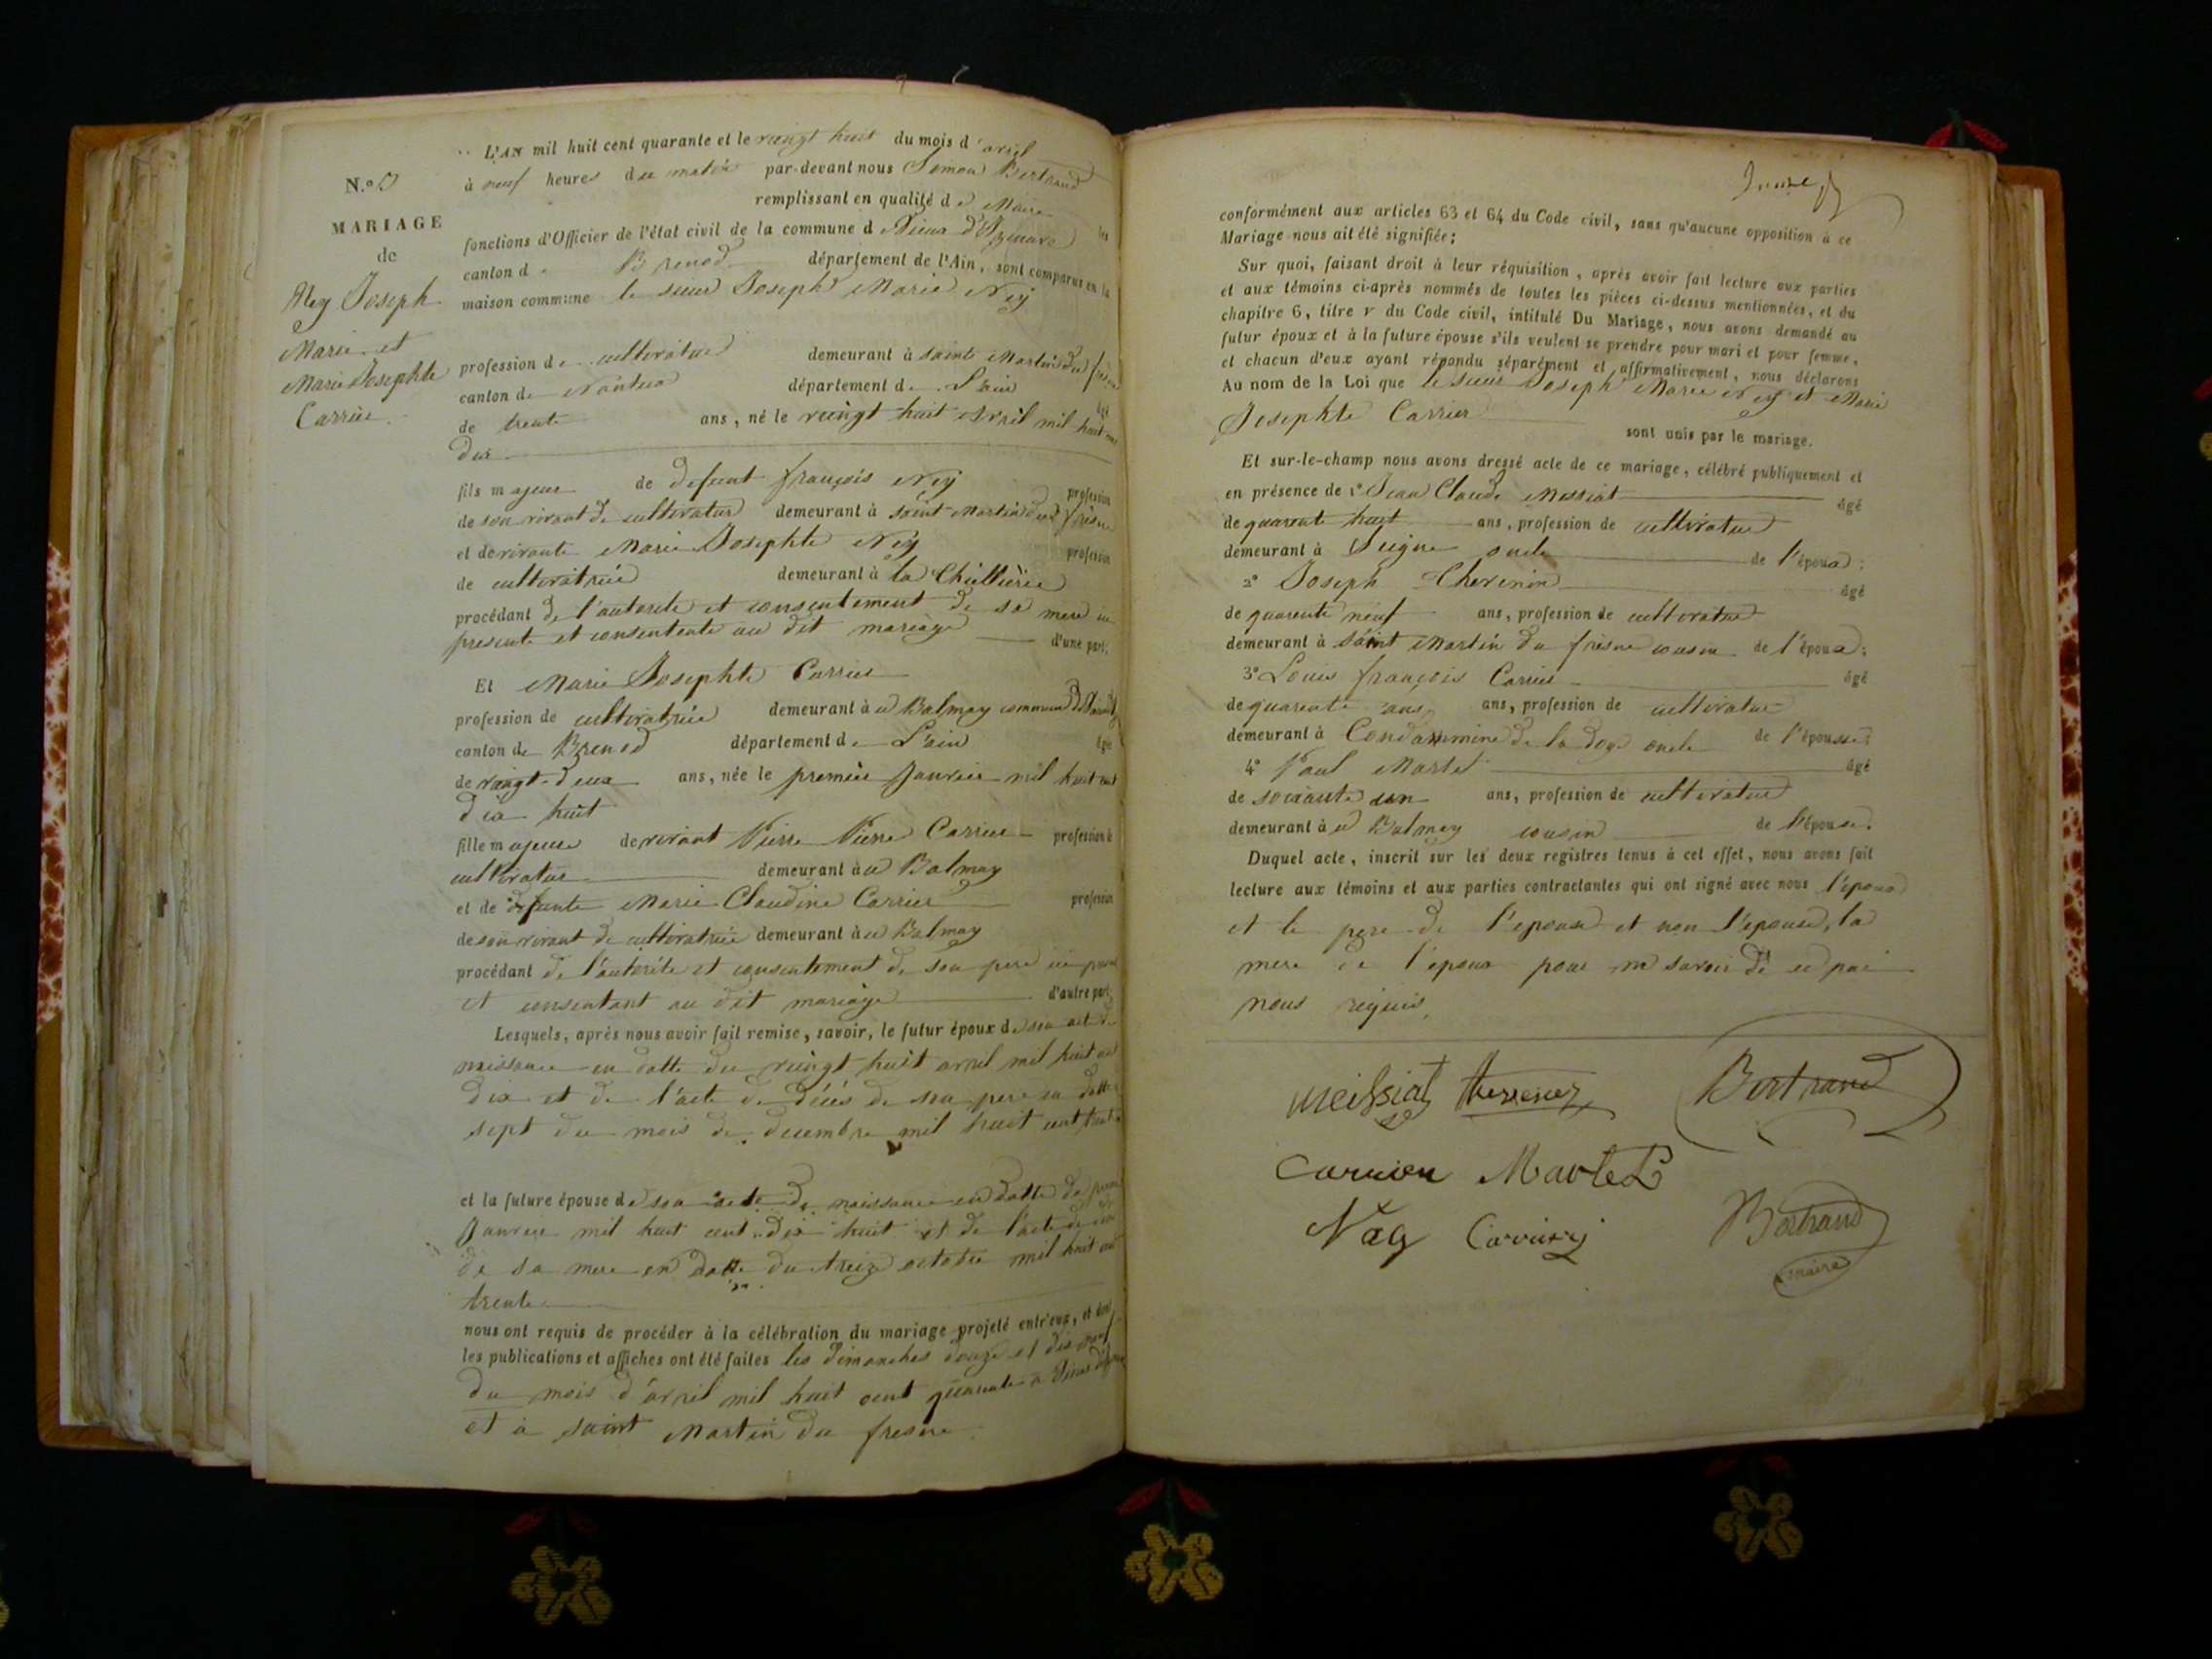 L'AN mil huit cent quarante et le vingt huit du mois d'avril
N.º
à neuf heures du matin par-devant nous Simon Bertrand
remplissant en qualité de Maire
MARIAGE
les
fonctions d'Officier de l'état civil de la commune d Vieux d'Izenave
de
canton de Brenod département de l'Ain, sont comparus en la
Ney Joseph
maison commune le sieur Joseph Marie Ney
Marie et
Marie Josephte
Carrier
profession de cultivateur demeurant à saint Martin du fresne
canton de Nantua département de L'ain
âgé
de trente ans, né le vingt huit Avril mil huit cent
dix
fils majeur de defunt françois Ney profession
de son vivant de cultivateur demeurant à saint Martin du fresne
et de vivante Marie Josephte Ney profession
de cultivatrice demeurant à la
procédant de l'autorité et consentement de sa mere ici
presente et consentente au dit mariage d'une part;
Et Marie Josephte Carrier
profession de cultivatrice demeurant à u Balmay commune de
canton de Brenod département de L'ain âgée
de vingt-deux ans, née le premier Janvier mil huit cent
dix huit
fille majeure de vivant Pierre Pierre Carrier profession de
cultivateur demeurant à u Balmay
et de defunte Marie Claudine Carrier profession
de son vivant de cultivatrice demeurant à u Balmay
procédant de l'autorité et consentement de son pere ici present
et consentant au dit mariage d'autre part;
Lesquels, après nous avoir fait remise, savoir, le futur époux de son acte de
naissance en datte du vingt huit avril mil huit cent
dix et de l'acte de décés de son pere en datte
sept du mois de decembre mil huit cent
et la future épouse de son acte de naissance en datte du
Janvier mil huit cent dix huit et de l'acte de
de sa mere en datte du treize octobre mil huit cent
trente
nous ont requis de procéder à la célébration du mariage projeté entr'eux, et dont
les publications et affiches ont été faites les dimanches douze et dix neuf
du mois d'avril mil huit cent quarante a Vieux d'Izenave
et à saint Martin du fresne
conformément aux articles 63 et 64 du Code civil, sans qu'aucune opposition à ce
Mariage nous ait été signifiée;
Sur quoi, faisant droit à leur réquisition, après avoir fait lecture aux parties
et aux témoins ci-après nommés de toutes les pièces ci-dessus mentionnées, et du
chapitre 6, titre v du Code civil, intitulé Du Mariage, nous avons demandé au
futur époux et à la future épouse s'ils veulent se prendre pour mari et pour femme,
et chacun d'eux ayant répondu séparément et affirmativement, nous déclarons
Au nom de la Loi que le sieur Joseph Marie Ney et Marie
Josephte Carrier
sont unis par le mariage.
Et sur-le-champ nous avons dressé acte de ce mariage, célébré publiquement et
en présence de 1º Jean Claude Messiat âgé
de quarante huit ans, profession de cultivateur
demeurant à Peigne oncle de l'époux;
2º Joseph Thevenin âgé
de quarente neuf ans, profession de cultivateur
demeurant à saint Martin du fresne cousin de l'époux;
3º Louis françois Carrier âgé
de quarente ans, ans, profession de cultivateur
demeurant à Condammine de la doye oncle de l'épouse;
4º Paul Martel âgé
de soixante un ans, profession de cultivateur
demeurant à u Balmay cousin de l'épouse.
Duquel acte, inscrit sur les deux registres tenus à cet effet, nous avons fait
lecture aux témoins et aux parties contractantes qui ont signé avec nous l'époux
et le pere de l'epouse et non l'epouse, la
mere de l'epoux pour ne savoir de ce par
nous requis.
Meissiat Thevenin Bertrand
Carrier Martel
Ney Carrier Bertrand
maire